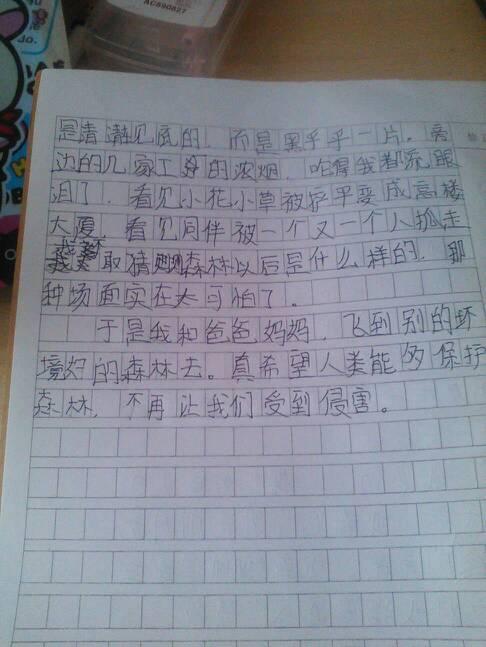 AC690827
是清澈见底的，而是黑乎乎一片。旁
边的几家工的浓烟，呛得我都流眼
泪了，看见小花小草被铲平变成高楼
大厦，看见同伴被一个又一个人抓走
取猜森林以后是什么样的，那
种场面实在太可怕了。
于是我和爸爸妈妈，飞到别的环
境好的森林去。真希望人类能够保护
森林，不再让我们受到侵害。